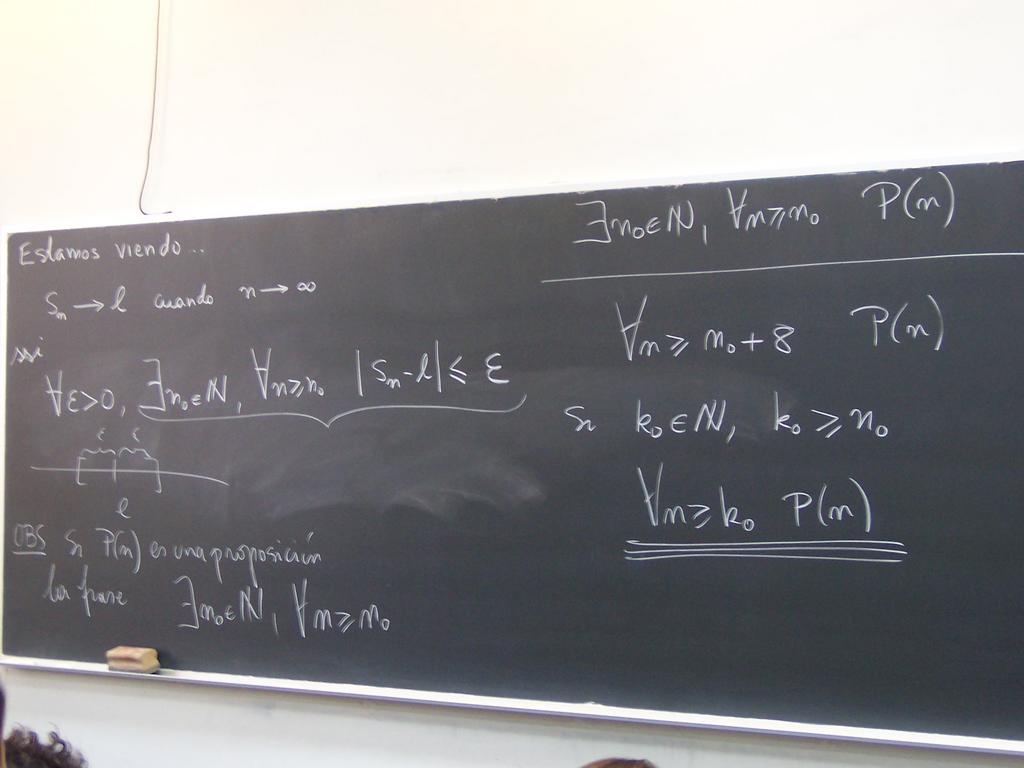 Estamos viendo..
Sₙ → l cuando n → ∞
ssi
∀ε>0, ∃n₀∈ℕ, ∀n≥n₀ |Sₙ-l| ≤ ε
ε ε
l
OBS Si P(n) es una proposición
la frase ∃n₀∈ℕ, ∀n≥n₀
∃n₀∈ℕ, ∀n≥n₀ P(n)
∀n≥n₀+8 P(n)
Si k₀∈ℕ, k₀≥n₀
∀n≥k₀ P(n)